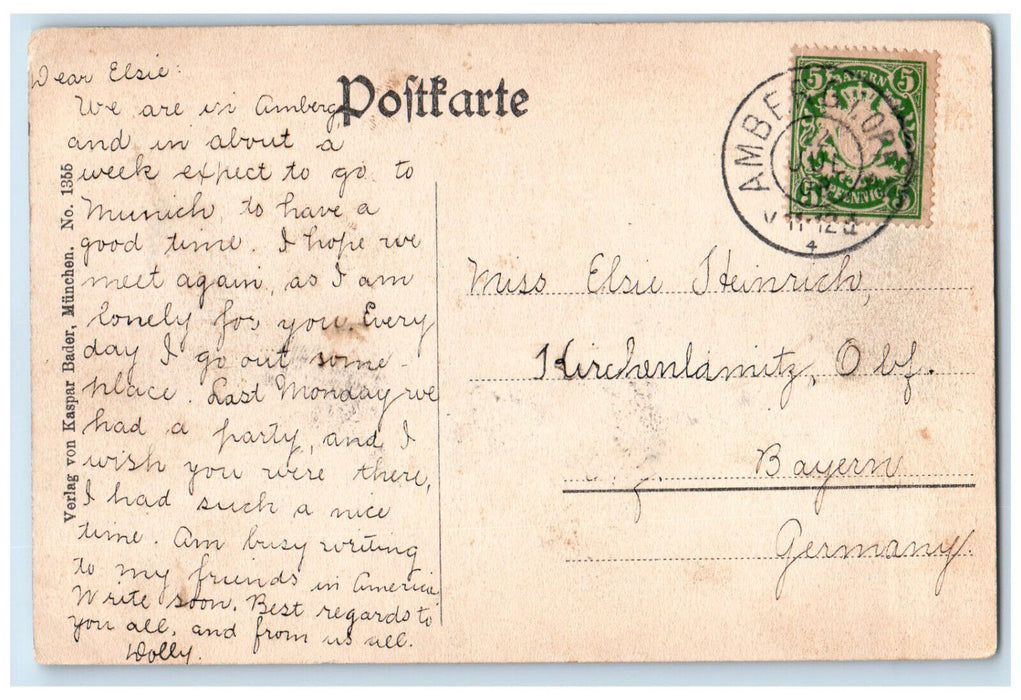 Dear Elsie:
We are in Amberg,
and in about a
week expect to go to
Munich, to have a
good time. I hope we
meet again, as I am
lonely for you. Every
day I go out some-
place. Last Monday we
had a party, and I
wish you were there,
I had such a nice
time. Am busy writing
to my friends in America
Write soon. Best regards to
you all, and from us all.
Dolly.
Verlag von Kaspar Bader, München. No. 1355
Poſtkarte
AMBERG
5 BAYERN 5
PFENNIG
Miss Elsie Heinrich,
Kirchenlamitz, Obf.
Bayern
Germany.